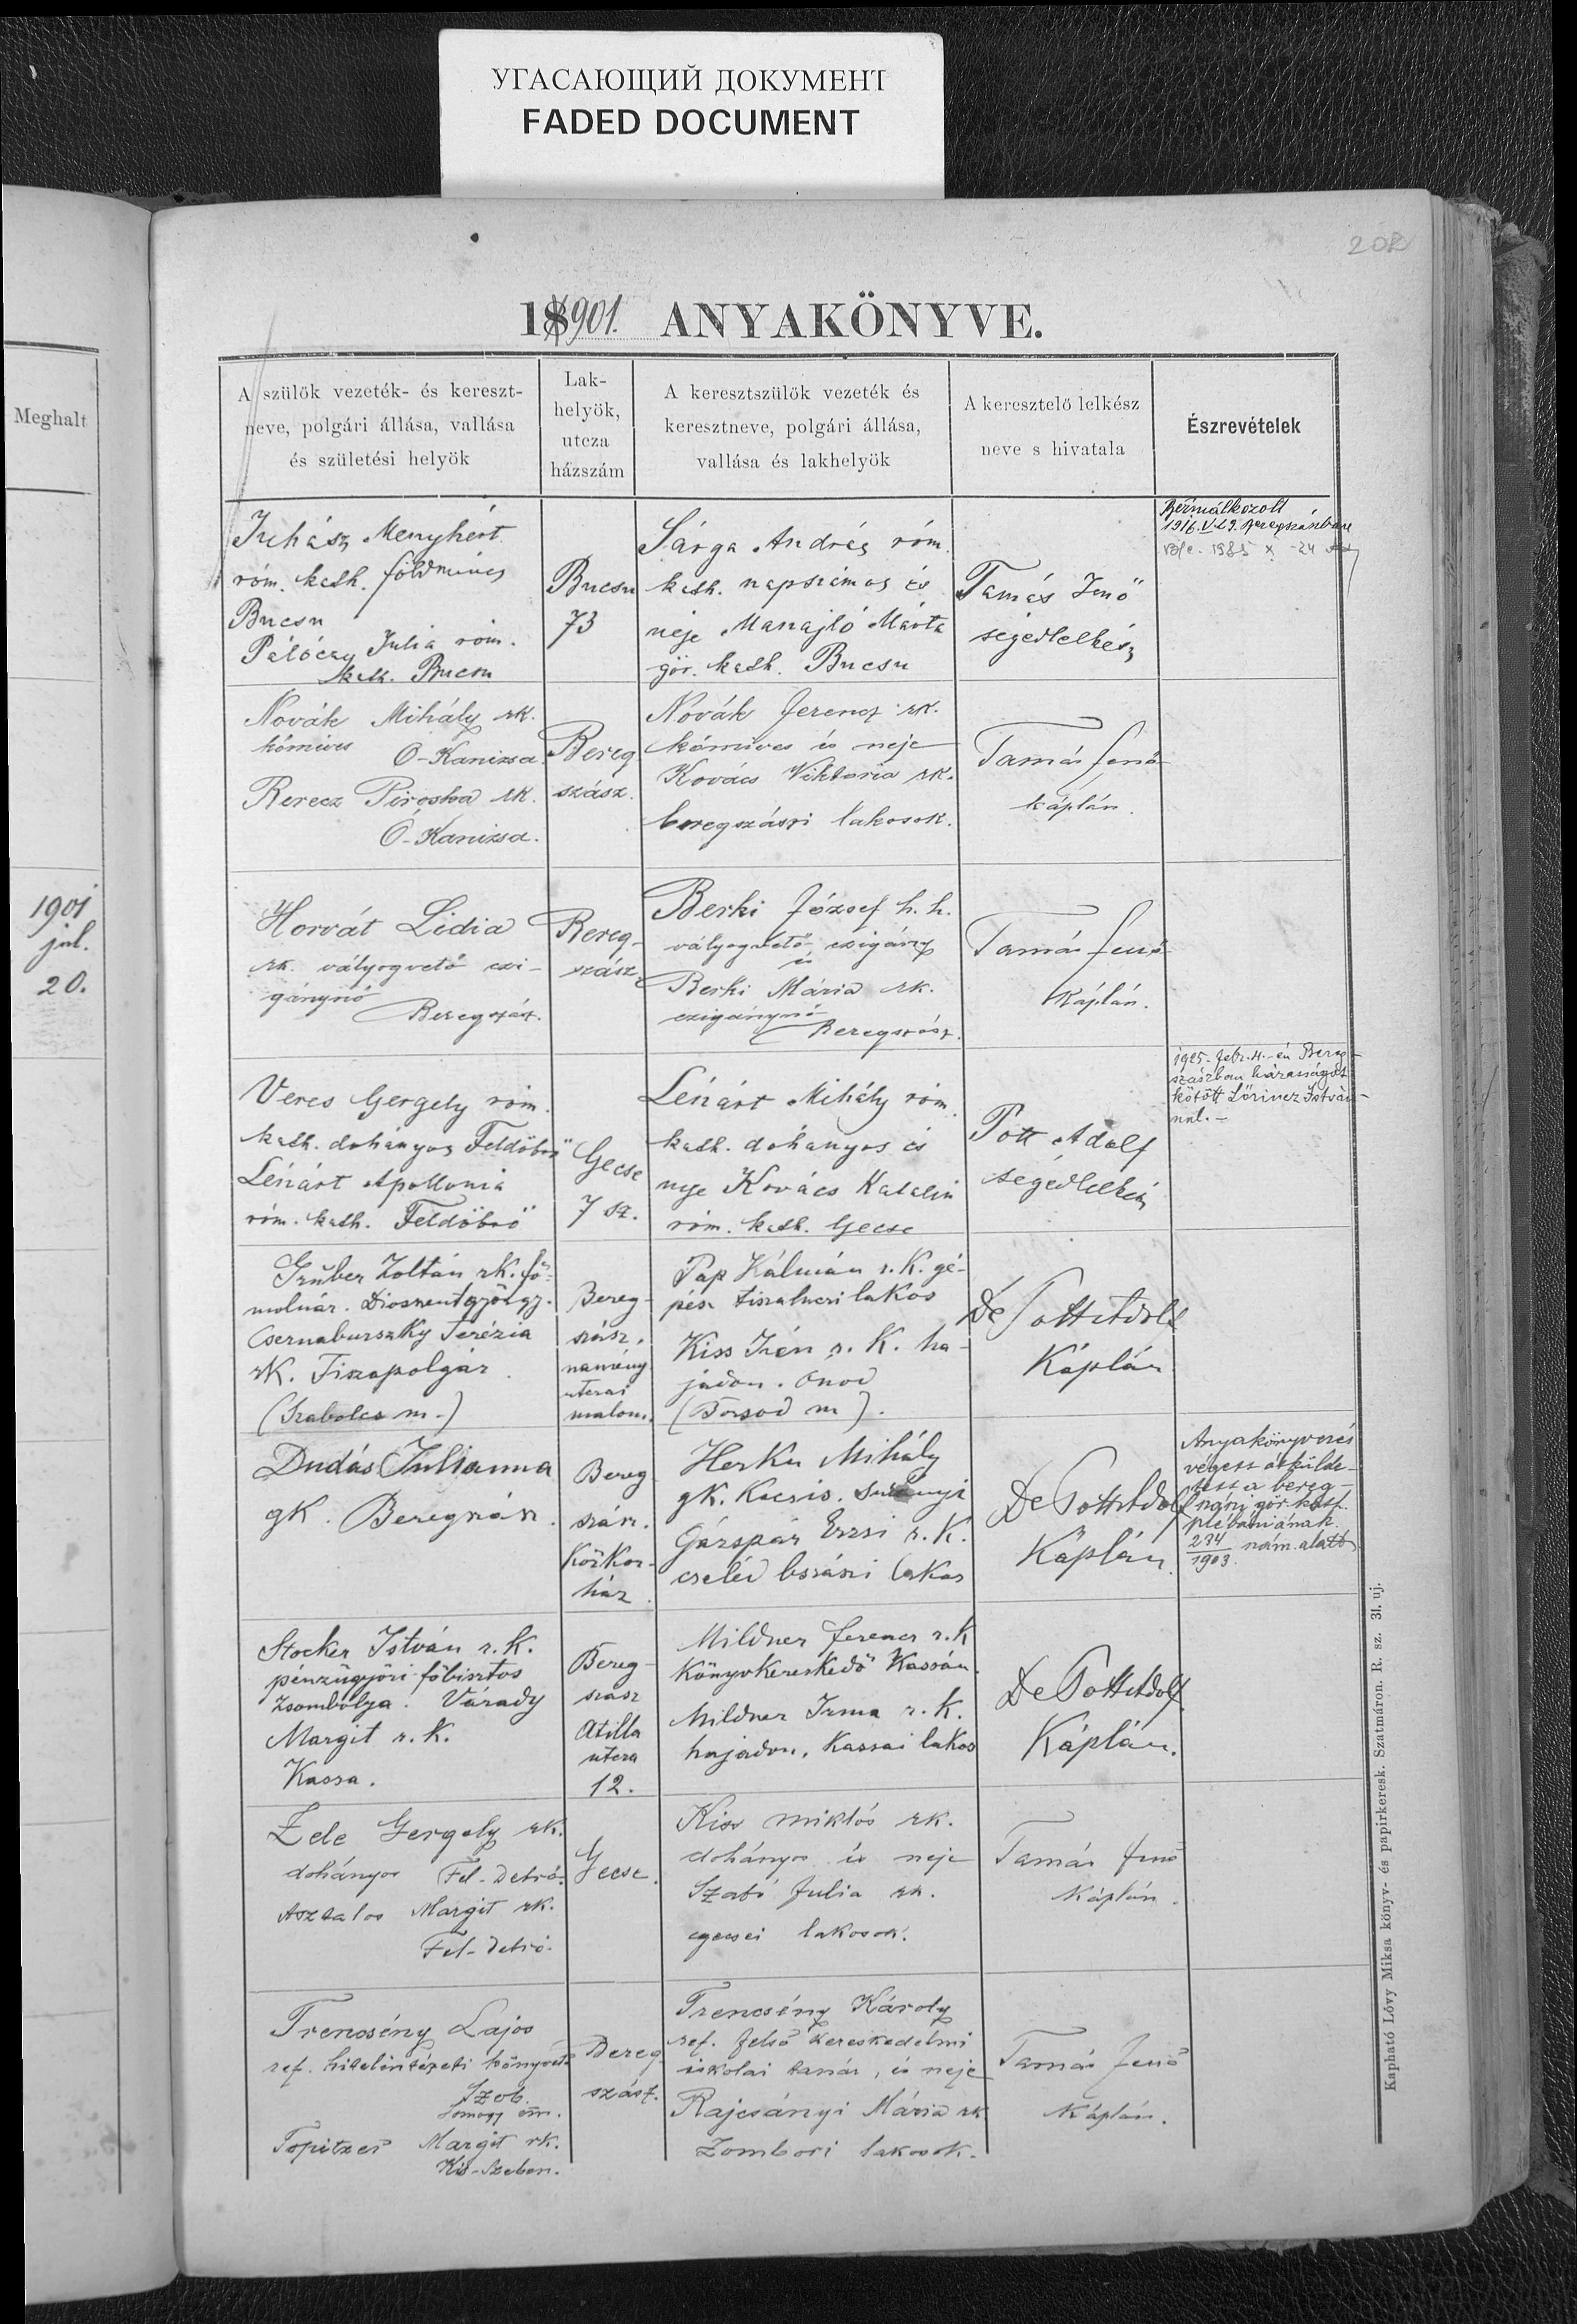 УГАСАЮЩИЙ ДОКУМЕНТ
FADED DOCUMENT
202
18901. ANYAKÖNYVE.
Meghalt
1901
jul.
20.
A szülök vezeték- és kereszt-
neve, polgári állása, vallása
és születési helyök
Lak-
helyök,
utcza
házszám
A keresztszülök vezeték és
keresztneve, polgári állása,
vallása és lakhelyök
A keresztelő lelkész
neve s hivatala
Észrevételek
Juhász Menyhért
róm. kath. földmives
Bucsu
Pálóczy Julia róm.
kath. Bucsu
Bucsu
73
Sárga András róm.
kath. napszámos és
neje Manajló Márta
gör. kath. Bucsu
Tamás Jenő
segédlelkész
Bérmálkozott
1916. V. 29. Beregszászban
1985 x -24
Novák Mihály rk.
kőmives Ó-Kanizsa
Berecz Piroska rk.
Ó-Kanizsa.
Bereg
szász.
Novák Ferencz rk.
kőmives és neje
Kovács Viktoria rk.
beregszászi lakosok.
Tamás Jenő
káplán.
Horvát Lidia
rk. vályogvető czi-
gánynő
Beregszász.
Bereg-
szász
Berki József h. h.
vályogvető czigány
és
Berki Mária rk.
czigánynő
Beregszász.
Tamás Jenő
Káplán.
Veres Gergely róm.
kath. dohányos Feldöbrő
Lénárt Apollonia
róm. kath. Feldöbrő
Gecse
7 sz.
Lénárt Mihály róm.
kath. dohányos és
neje Kovács Katalin
róm. kath. Gecse
Pott Adolf
segédlelkész
1925. febr. 4.-én Bereg-
szászban házasságot
kötött Lőrincz István-
nal. -
Gruber Zoltán rk. fő-
molnár. Diosszentgyörgy.
Csernaburszky Terézia
rk. Tiszapolgár
(Szabolcs m.)
Bereg-
szász.
namény
utczai
malom.
Pap Kálmán r. K. gé-
pész tiszaluczi lakos
Kiss Irén r. K. ha-
jadon. Onod
(Borsod m).
De Pott Adolf
Káplán
Dudás Julianna
gk. Beregszász.
Bereg
szász.
Közkor-
ház.
Herku Mihály
gk. Kocsis.
Gáspár Erzsi r. K.
cseléd bszászi lakos
De Pott Adolf
Káplán.
Anyakönyvezés
végett átkülde-
tett a bereg-
szászi gör. kath.
plébániának
234/1903. szám alatt
Stocker István r. k.
pénzügyőri főbiztos
Zsombolya. Várady
Margit r. k.
Kassa.
Bereg-
szász
Atilla
utcza
12.
Mildner Ferencz r. k
Könyvkereskedő Kassán.
Mildner Irma r. k.
hajadon. Kassai lakos
De Pott Adolf
Káplán.
Zele Gergely rk.
dohányos Fel-Debrő.
Asztalos Margit rk.
Fel-Debrő.
Gecse.
Kiss Miklós rk.
dohányos és neje
Szabó Julia rk.
gecsei lakosok.
Tamás Jenő
Káplán.
Trencsény Lajos
ref. hitelintézeti könyvelő
Szob.
Somogy vm.
Topitzer Margit rk.
Kis-Szeben.
Bereg
szász.
Trencsény Károly
ref. felső kereskedelmi
iskolai tanár, és neje
Rajcsányi Mária rk
Zombori lakosok.
Tamás Jenő
Káplán.
Kapható Lóvy Miksa könyv- és papirkeresk. Szatmáron. R. sz. 3l. uj.